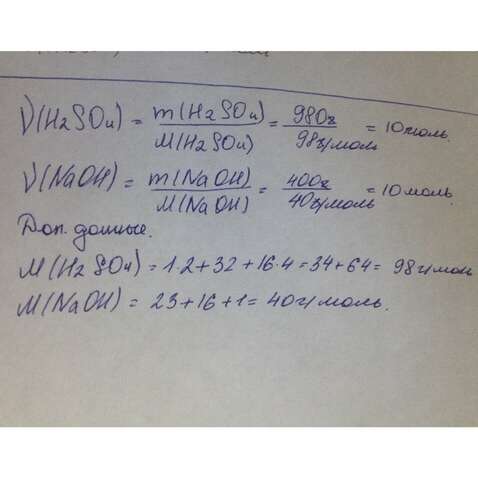 ν(H2SO4) = m(H2SO4)/M(H2SO4) = 980г/98г/моль = 10моль.
ν(NaOH) = m(NaOH)/M(NaOH) = 400г/40г/моль = 10моль.
Доп. данные.
M(H2SO4) = 1·2+32+16·4=34+64= 98г/мол
M(NaOH) = 23+16+1= 40г/моль.